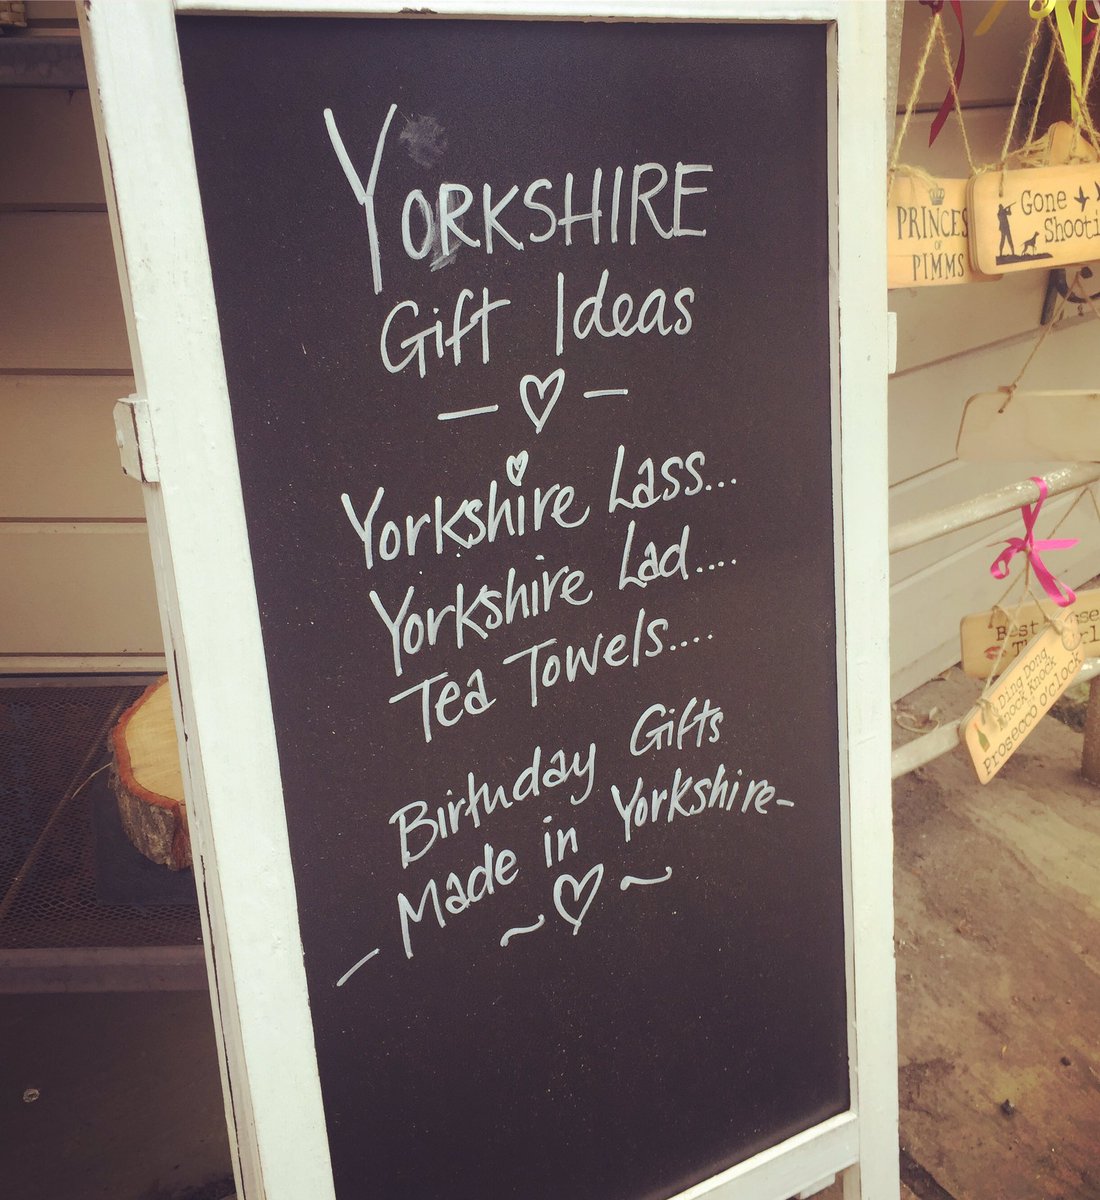 YORKSHIRE
Gift Ideas
Yorkshire Lass...
Yorkshire Lad....
Tea Towels....
Birthday Gifts
- Made in Yorkshire -
PRINCES
OF
PIMMS
Gone
Shooti
Best
Ding Dong
Knock Knock
Prosecco o'clock